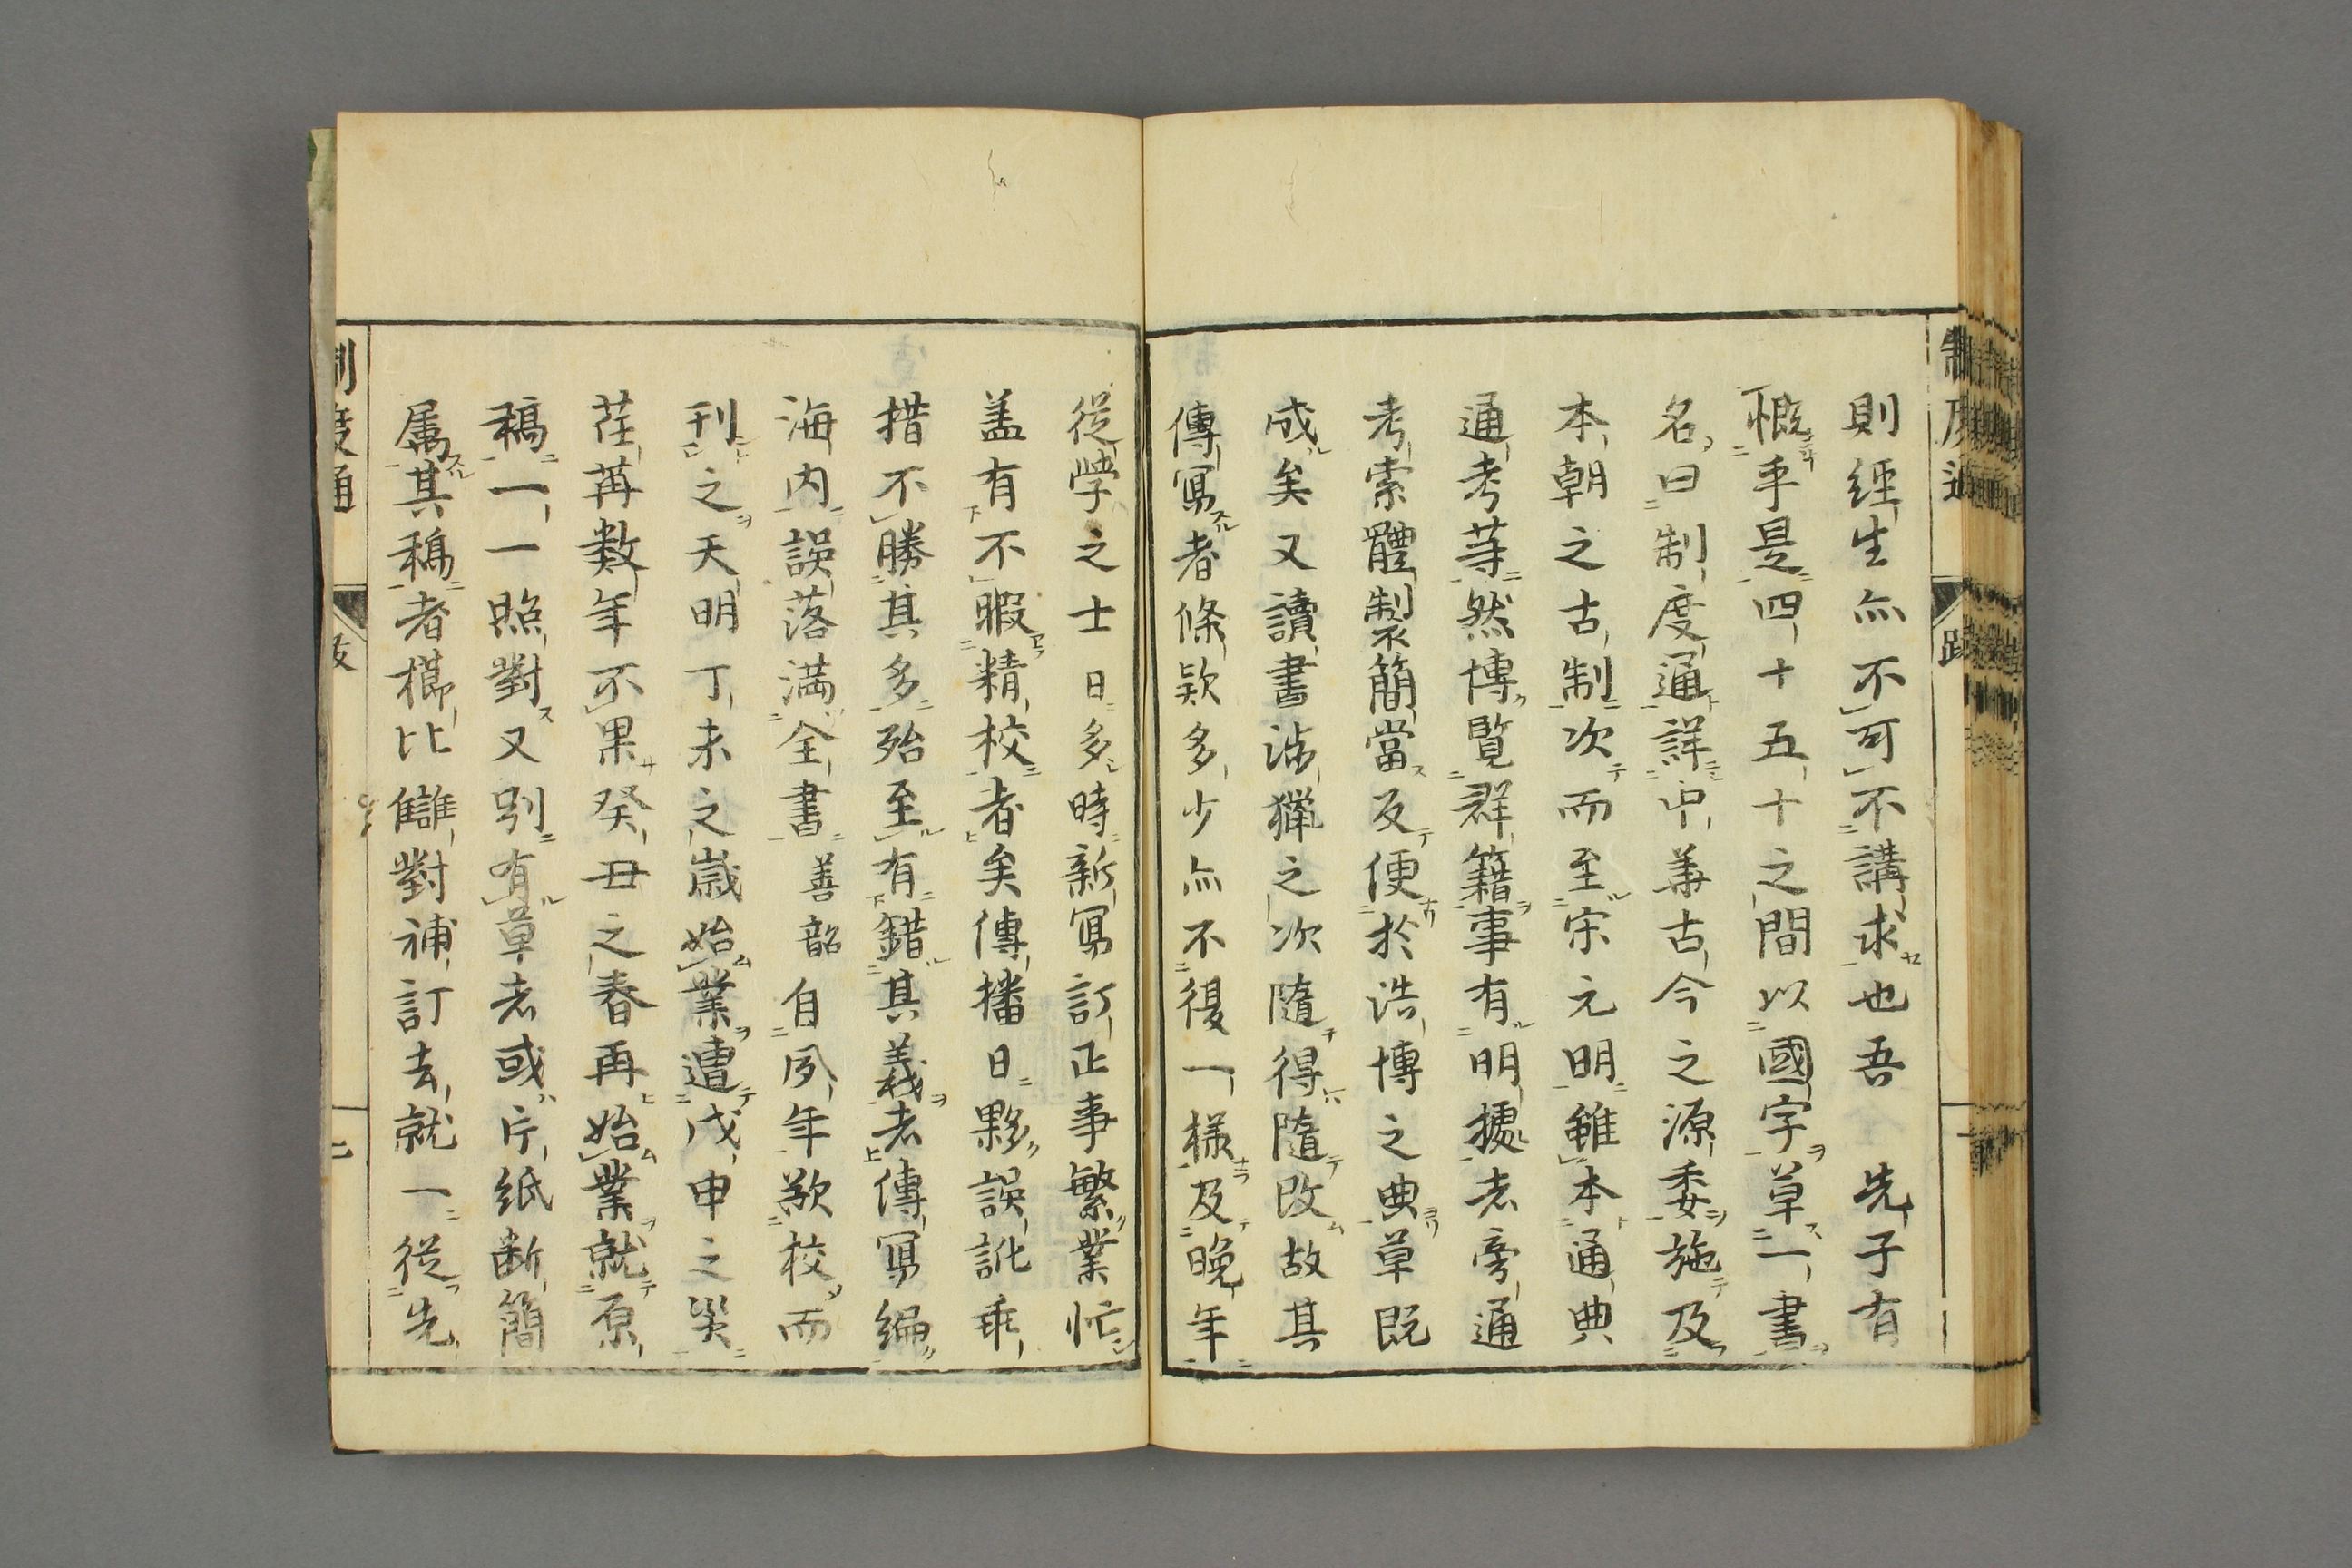 則經生亦不可不講求也吾　先子有
慨乎是四十五十之間以國字草一書
名曰制度通詳中華古今之源委施及
本朝之古制次而至宋元明雖本通典
通考等然博覧群籍事有明據者旁通
考索體製簡當反便於浩博之典草既
成矣又讀書渉獵之次隨得隨改故其
傳寫者條款多少亦不復一様及晩年
從學之士日多時新寫訂正事繁業忙
盖有不暇精校者矣傳播日夥誤訛乖
措不勝其多殆至有錯其義者傳寫編
海内誤落満全書善韶自夙年欲校而
刊之天明丁未之歳始業遭戊申之災
荏苒数年不果癸丑之春再始業就原
稿一一照對又別有草者或片紙断簡
属其稿者櫛比讎對補訂去就一從先
制度通
跋